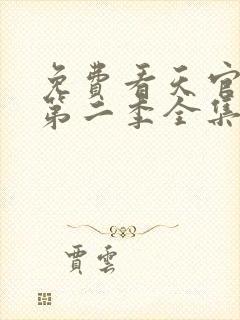 免费看天官
第二季全集
賈雲